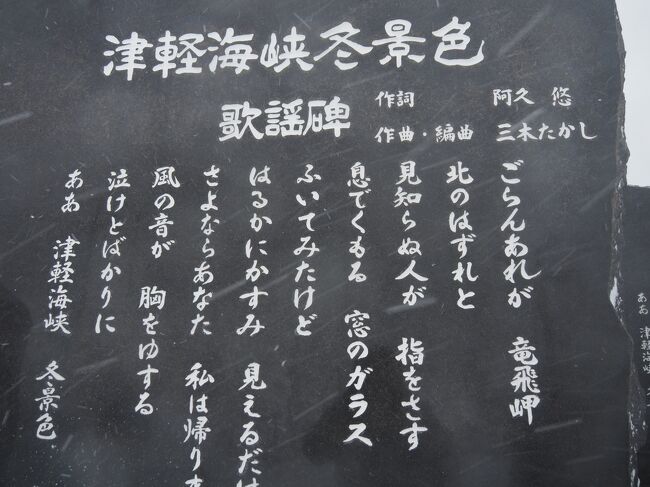 津軽海峡冬景色
歌謡碑
作詞 阿久 悠
作曲・編曲 三木たかし
ごらんあれが 竜飛岬
北のはずれと
見知らぬ人が 指をさす
息でくもる 窓のガラス
ふいてみたけど
はるかにかすみ 見えるだけ
さよならあなた 私は帰りま
風の音が 胸をゆする
泣けとばかりに
ああ 津軽海峡 冬景色
ああ 津軽海峡